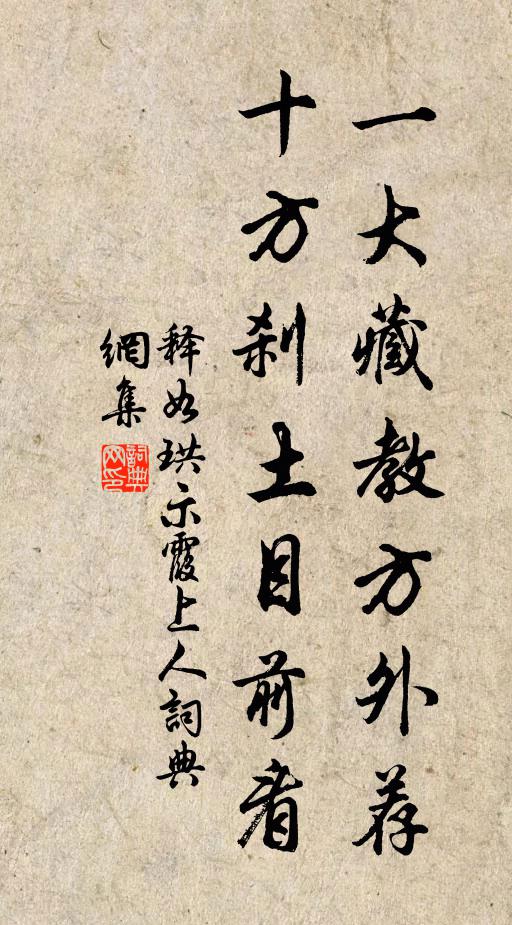 一大藏教方外荐
十方刹土目前看
释如珙示霞上人詞典
網集
詞典
网印